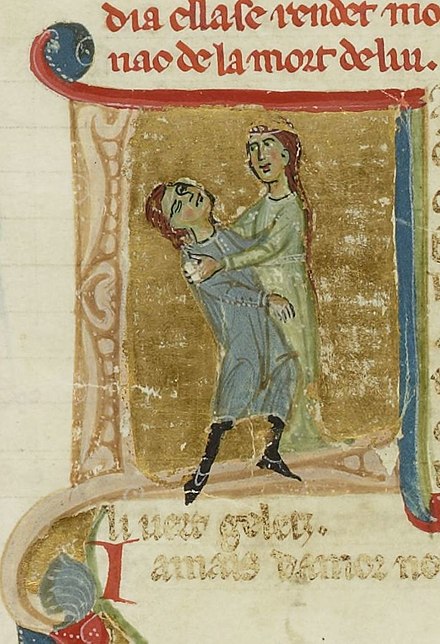 dia ella se rendet mo
nao de la mort de lui.
li uern gelatz.
Iamais damor no